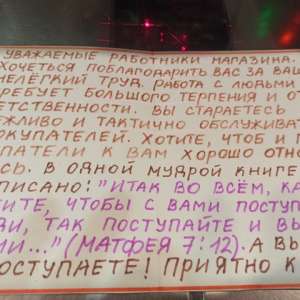 УВАЖАЕМЫЕ РАБОТНИКИ МАГАЗИНА.
ХОЧЕТЬСЯ ПОБЛАГОДАРИТЬ ВАС ЗА ВАШ
НЕЛЁГКИЙ ТРУД. РАБОТА С ЛЮДЬМИ
РЕБУЕТ БОЛЬШОГО ТЕРПЕНИЯ И ОТ
ЕТСТВЕННОСТИ. ВЫ СТАРАЕТЕСЬ
ЕЖЛИВО И ТАКТИЧНО ОБСЛУЖИВАТ
ОКУПАТЕЛЕЙ. ХОТИТЕ, ЧТОБ И П
ПАТЕЛИ К ВАМ ХОРОШО ОТНО
СЬ. В ОДНОЙ МУДРОЙ КНИГЕ
ПИСАНО: "ИТАК ВО ВСЁМ, КА
ТИТЕ, ЧТОБЫ С ВАМИ ПОСТУП
ДИ, ТАК ПОСТУПАЙТЕ И ВЫ
МИ..." (МАТФЕЯ 7:12). А ВЫ
ПОСТУПАЕТЕ! ПРИЯТНО К